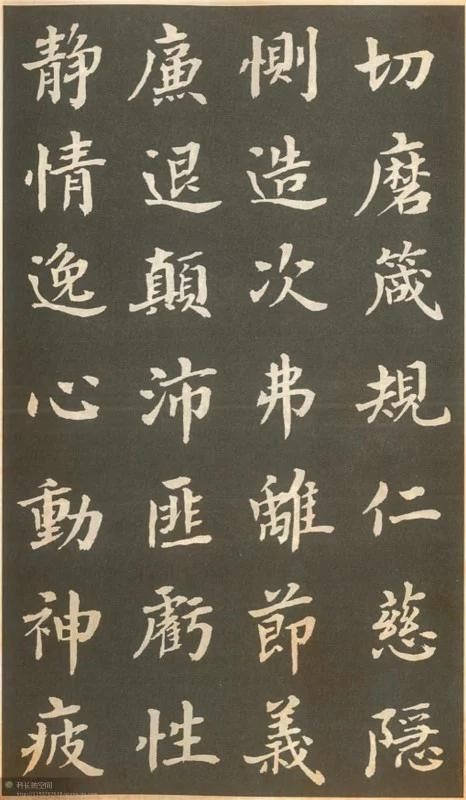 切磨箴規仁慈隱
惻造次弗離節義
廉退顛沛匪虧性
静情逸心動神疲
科长施空间